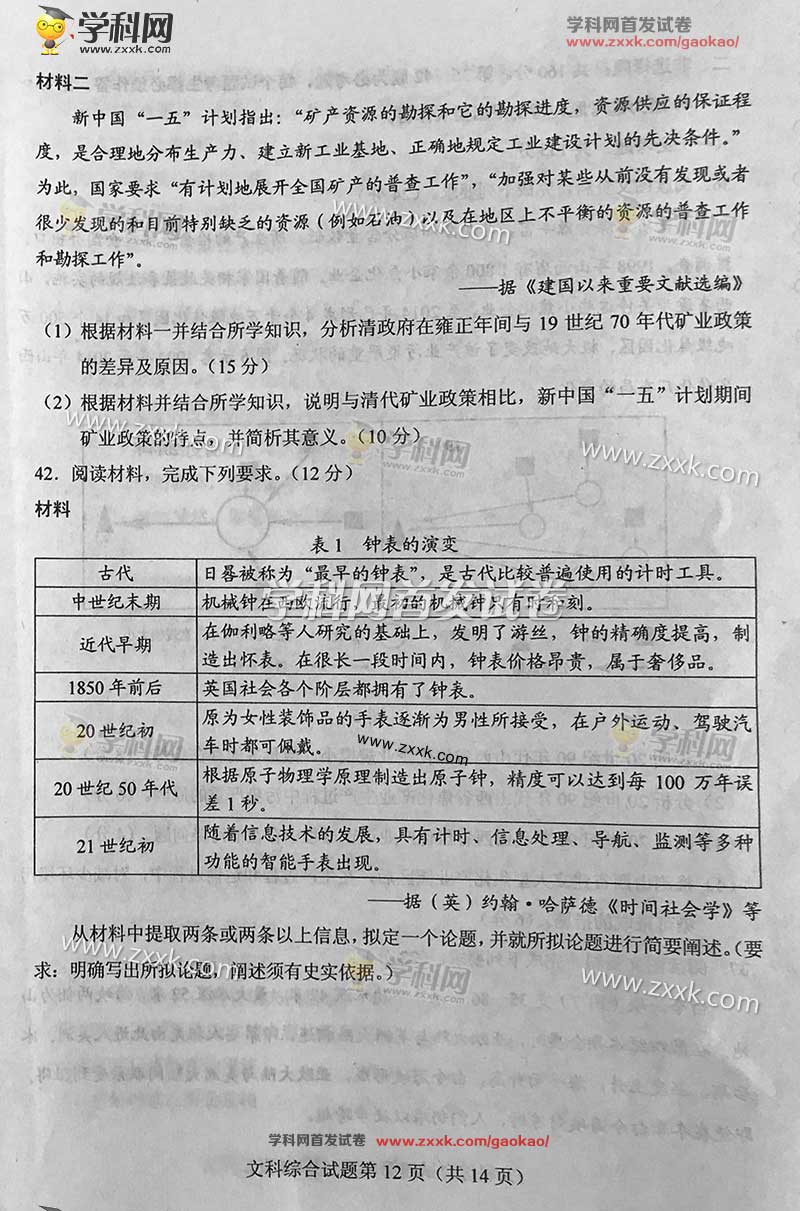 学科网
www.zxxk.com
学科网首发试卷
www.zxxk.com/gaokao/
材料二
新中国“一五”计划指出：“矿产资源的勘探和它的勘探进度，资源供应的保证程
度，是合理地分布生产力、建立新工业基地、正确地规定工业建设计划的先决条件。”
为此，国家要求“有计划地展开全国矿产的普查工作”，“加强对某些从前没有发现或者
很少发现的和目前特别缺乏的资源（例如石油）以及在地区上不平衡的资源的普查工作
和勘探工作”。
——据《建国以来重要文献选编》
（1）根据材料一并结合所学知识，分析清政府在雍正年间与 19 世纪 70 年代矿业政策
的差异及原因。（15 分）
（2）根据材料并结合所学知识，说明与清代矿业政策相比，新中国“一五”计划期间
矿业政策的特点，并简析其意义。（10 分）
42．阅读材料，完成下列要求。（12 分）
材料
表 1 钟表的演变
古代 日晷被称为“最早的钟表”，是古代比较普遍使用的计时工具。
中世纪末期 机械钟在西欧流行，最初的机械钟只有时针刻。
近代早期 在伽利略等人研究的基础上，发明了游丝，钟的精确度提高，制
造出怀表。在很长一段时间内，钟表价格昂贵，属于奢侈品。
1850 年前后 英国社会各个阶层都拥有了钟表。
20 世纪初 原为女性装饰品的手表逐渐为男性所接受，在户外运动、驾驶汽
车时都可佩戴。
20 世纪 50 年代 根据原子物理学原理制造出原子钟，精度可以达到每 100 万年误
差 1 秒。
21 世纪初 随着信息技术的发展，具有计时、信息处理、导航、监测等多种
功能的智能手表出现。
——据（英）约翰·哈萨德《时间社会学》等
从材料中提取两条或两条以上信息，拟定一个论题，并就所拟论题进行简要阐述。（要
求：明确写出所拟论题，阐述须有史实依据。）
学科网首发试卷 www.zxxk.com/gaokao/
文科综合试题第 12 页（共 14 页）